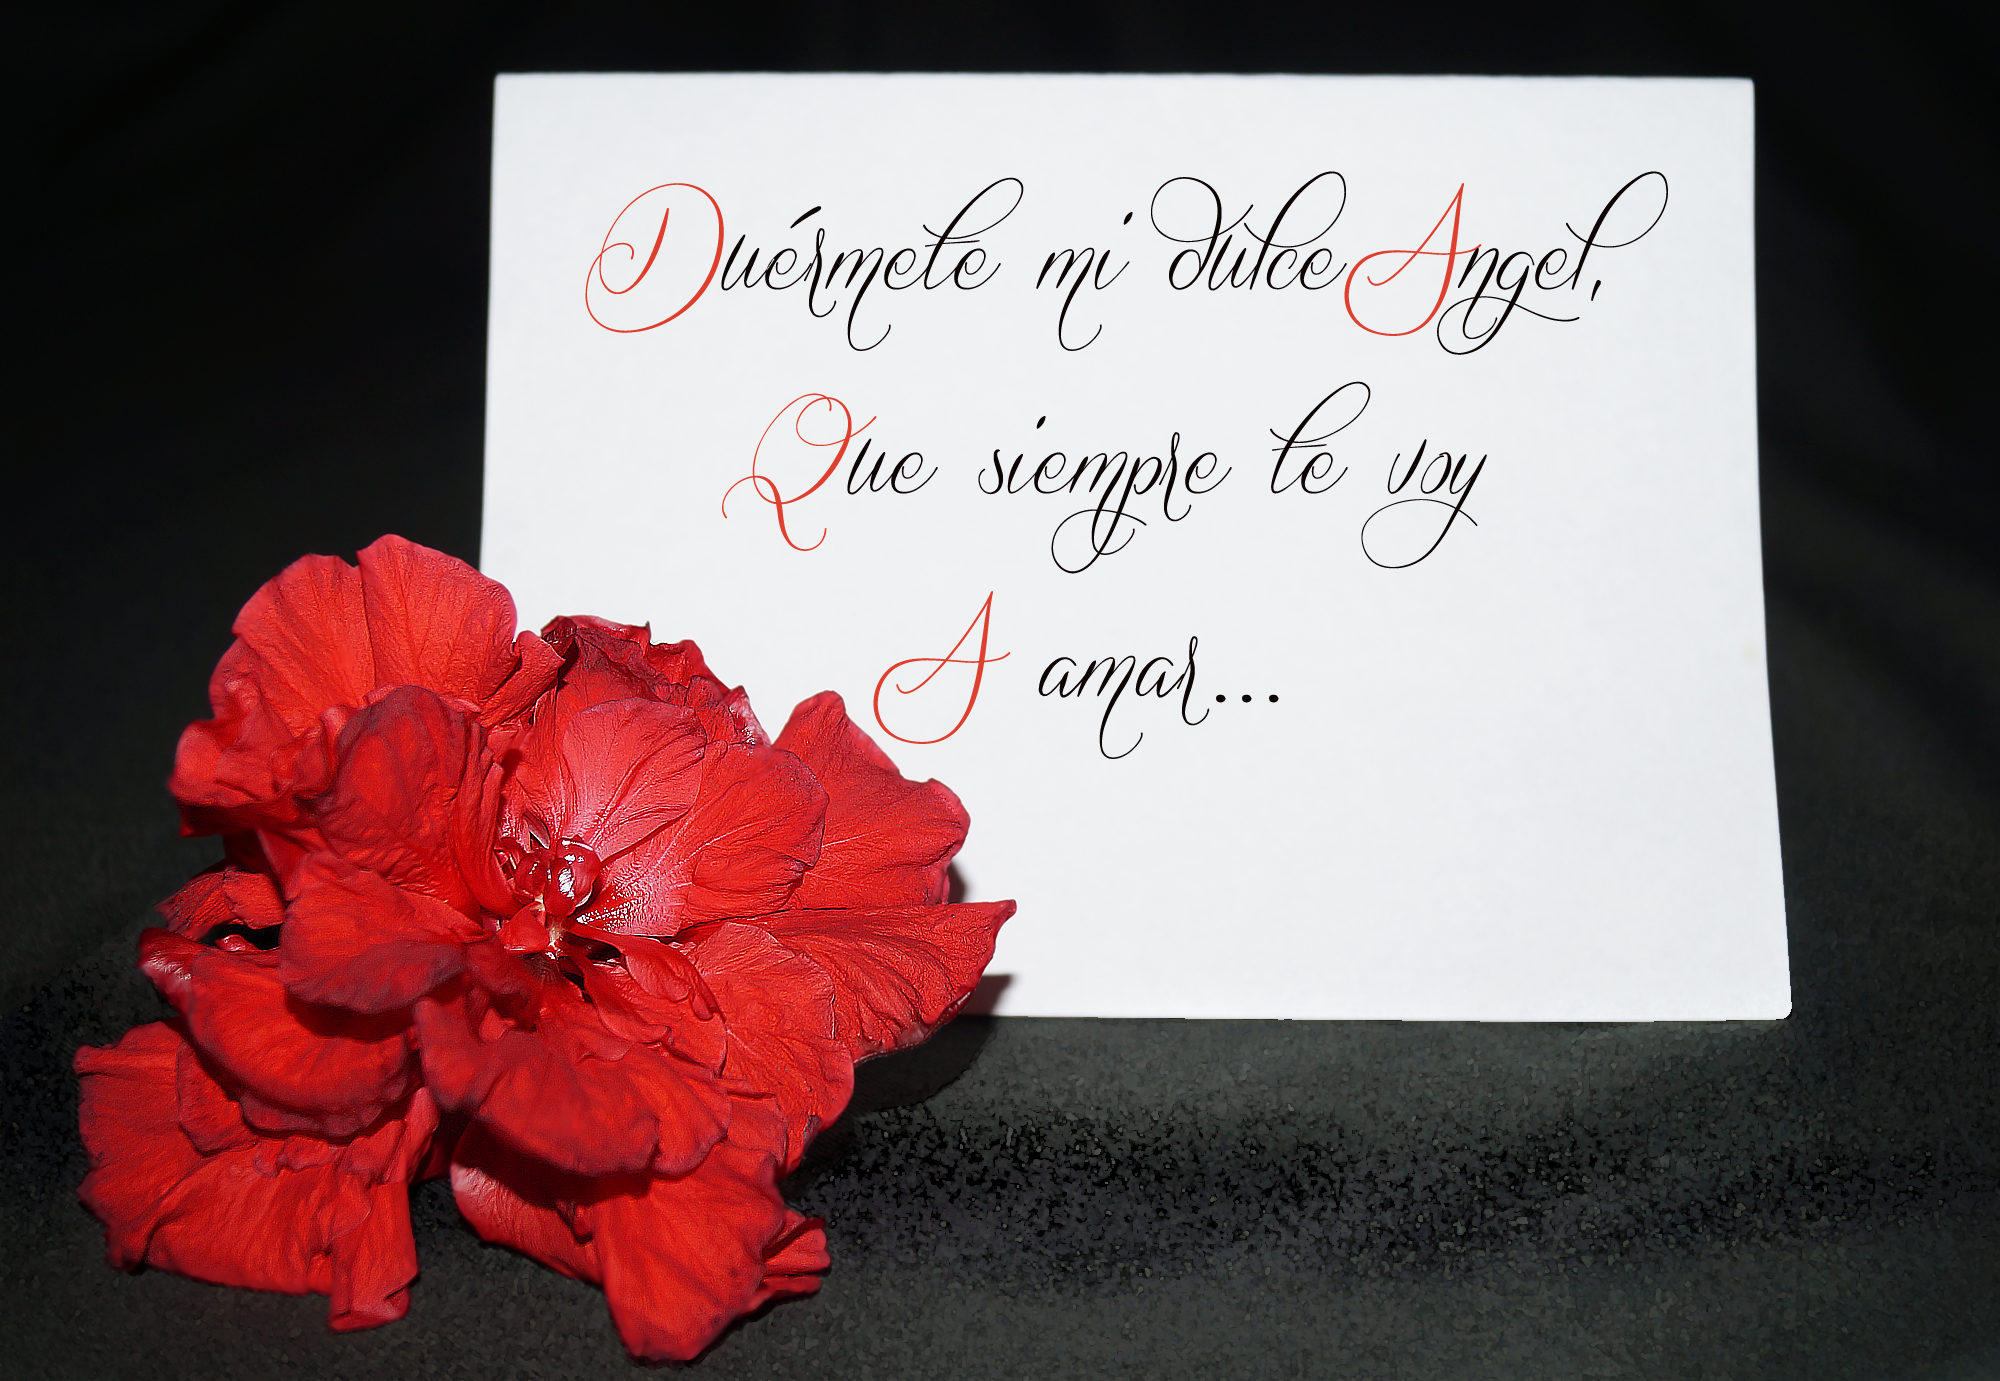 Duérmete mi dulce Angel,
Que siempre te voy
A amar...